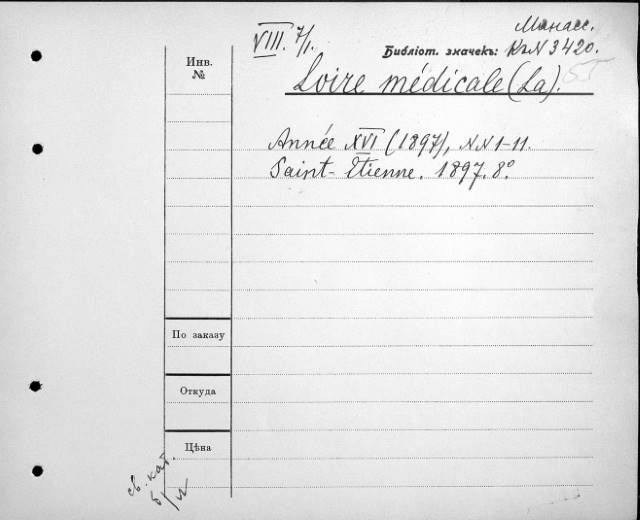 Манасс.
VIII. 7/1. Библіот. значекъ: К.N 3420.
55
Инв.
№
Loire médicale (La).
Année XVI (1897), NN 1-11.
Saint-Etienne. 1897. 8°
По заказу
Откуда
Цѣна
св. кат.